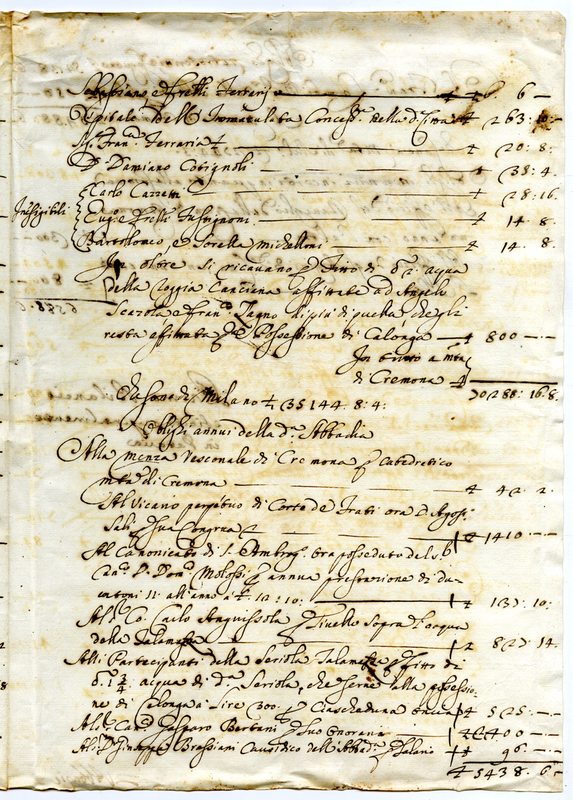 Sebastiano e Frelli Ferrari — 6. 6 —
Ospitale dell' Immacolata Concess.e della d.a Città 263: 10:—
Sig. Fran.ca Ferraria 20: 8.
D. Damiano Cotignoli — 38: 4.
Carlo Cazzetti — 28: 16.
Inesigibili
Eug.o e Frelli — 14. 8.
Bartolomeo, e Sorella Michelloni — 14. 8.
In oltre si ricavano p fitto di d.a acqua
della Roggia Canciana affittata ad Angelo
Scazola e Fran.co Tagno di più di quella, che gli
resta affittata p la Possessione di Calonga — 800 — —
In tutto a m.ta
di Cremona 288: 16. 8.
Che sono di Milano 35144. 8: 4:
Oblighi annui della d.a Abbadia
Alla Menza Vescovale di Cremona p Catedretico
m.ta di Cremona — 42. 2.
Al Vicario perpetuo di Corte de Frati ora D. Agos.
p sua Congrua 1410 — —
Al Canonicato di S. Ambrog.o ora posseduto del S.
Can.o D. Dom.o Molossi p annua prestazione di du-
catoni 11: all'anno a 12: 10: — 137: 10:
Al S. Co. Carlo Anguissola p livello sopra l'acqua
della Talamazza 827: 14.
Alli Partecipanti della Seriola Talamazza p fitto di
d.a 1 3/4 acqua di d.a Seriola, che serve alla possessio-
ne di Calonga a lire 300: p ciascheduna oncia 525 — —
Al S. Can.o Gasparo Bertani p suo Onorario 400 — —
Al S. D. Giuseppe Bressiani Causidico dell'Abbad.a p Salario 96 — —
5438. 6 —